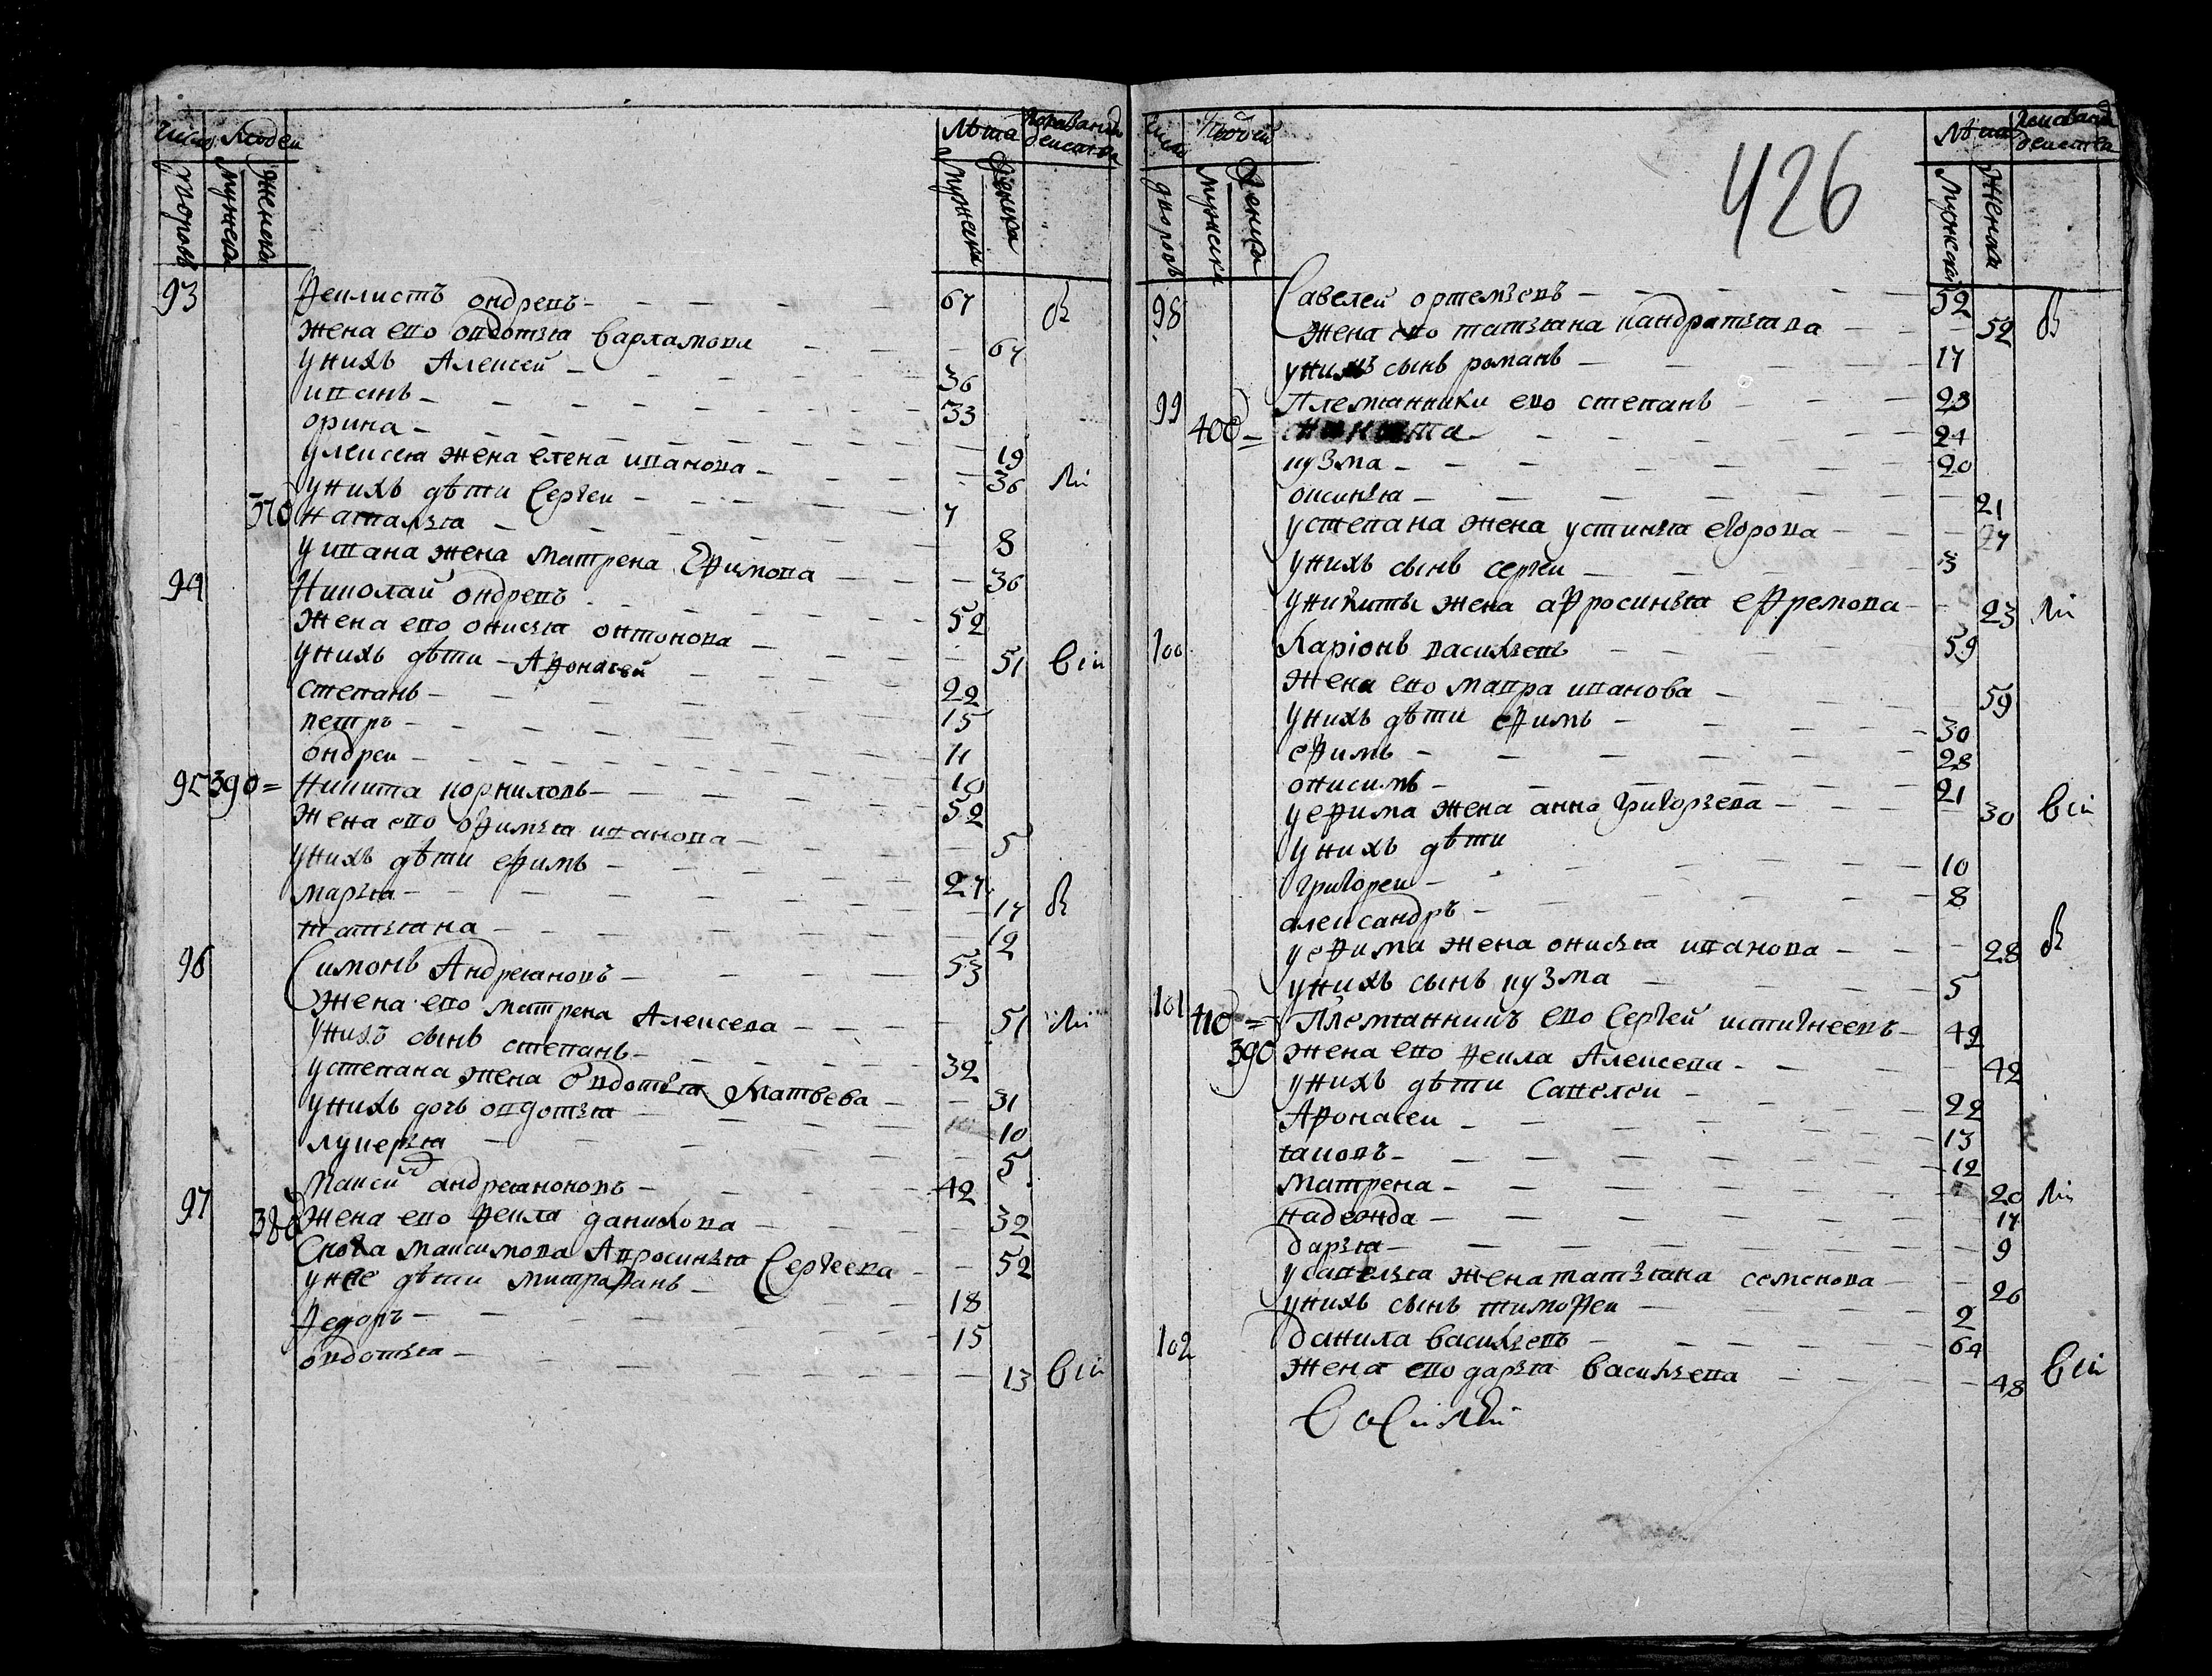 число Людеи
Лѣта
дворовъ мужеска женска
мужеска женска
93 Феклистъ ондревъ 67
жена ево овдотья варламова 67
у нихъ Алексей 36
иванъ 33
орина 19
у лексея жена елена иванова 36
у нихъ дѣти Сергеи 7
370 наталья 8
у ивана жена матрена Ефимова 36
94 Николай ондревъ 52
жена ево онисья онтонова 51
у нихъ дѣти Афонасей 22
степанъ 15
петръ 11
ондреи 10
95 390 = Никита корниловъ 52
жена ево офимья иванова 5
у нихъ дѣти ефимъ 27
марья 17
татьяна 12
96 Симонъ Андреяновъ 53
жена ево матрена Алексева 51
у нихъ сынъ степанъ 32
у степана жена Овдотья Матвева 31
у нихъ дочь овдотья 10
лукерья 5
97 Максим андреяноновъ 42
380 жена ево фекла данилова 32
Сноха максимова Апросинья Сергеева 52
у нее дѣти митрафанъ 18
федоръ 15
овдотья 13
426
число людей
лѣта
дворовъ мужеска женска
мужеска женска
98 Савелей ортемьевъ 52
жена ево татьяна кандратьява 52
у нихъ сынъ романъ 17
99 Племянники ево степанъ 23
400 = никита 21
кузма 20
оксинья 21
у степана жена устинья егорова 27
у нихъ сынъ сергеи 3
у никиты жена афросинья ефремова 23
100 Ларионъ васильевъ 59
жена ево мавра иванова 59
у нихъ дѣти ефимъ 30
ефимъ 28
онисимъ 21
у ефима жена анна григорьева 30
у нихъ дѣти
григореи 10
александръ 8
у ефима жена онисья иванова 28
у нихъ сынъ кузма 5
101 410 = Племянникъ ево Сергей истигнеевъ 42
390 жена ево фекла Алексева 42
у нихъ дѣти Савелеи 22
Афонасеи 13
яковъ 12
матрена 20
надежда 17
дарья 9
у савелья жена татьяна семенова 26
у нихъ сынъ тимофеи 2
102 данила васильевъ 64
жена ево дарья васильева 48